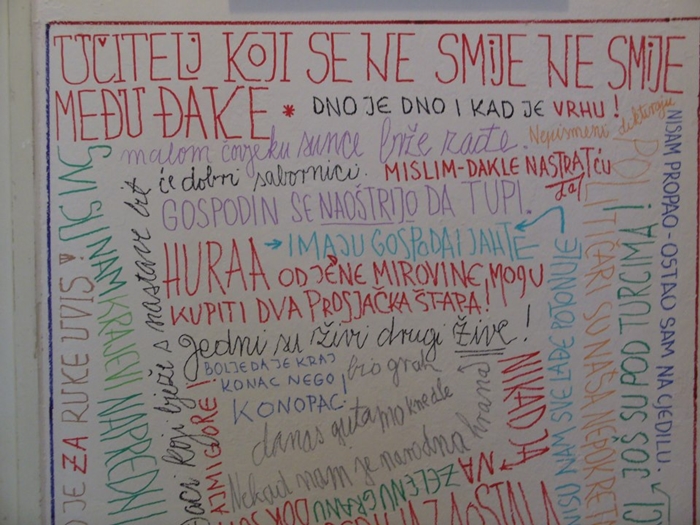 UČITELJ KOJI SE NE SMIJE NE SMIJE
MEĐU ĐAKE * DNO JE DNO I KAD JE VRHU!
malom čovjeku sunce brže zađe. Nepismeni diktiraju
će dobri sabornici. MISLIM-DAKLE NASTRAT ću
da!
GOSPODIN SE NAOŠTRIJO DA TUPI.
→ IMAJU GOSPODA I JAHTE
HURAA ODJENE MIROVINE, MOGU
KUPITI DVA PROSJAČKA ŠTAPA!
Jedni su živi drugi žive!
BOLJE DA JE KRAJ
KONAC NEGO
KONOPAC.
bio grah
danas gutamo knedle
Nekad nam je narodna hrana
NA ZELENU GRANU
ZAOSTALA
NIKAD JA
SVI SU
SVI SU NAM KRAJEVI NAPREDNI
JE ZA RUKE UVIS!
Đaci koji bježe s nastave bit
NISU NAM SVE LAĐE POTONULE
POLITIČARI SU NAŠA NEPOKRET
JOŠ SU POD TURCIMA!
NISAM PROPAO - OSTAO SAM NA CJEDILU.